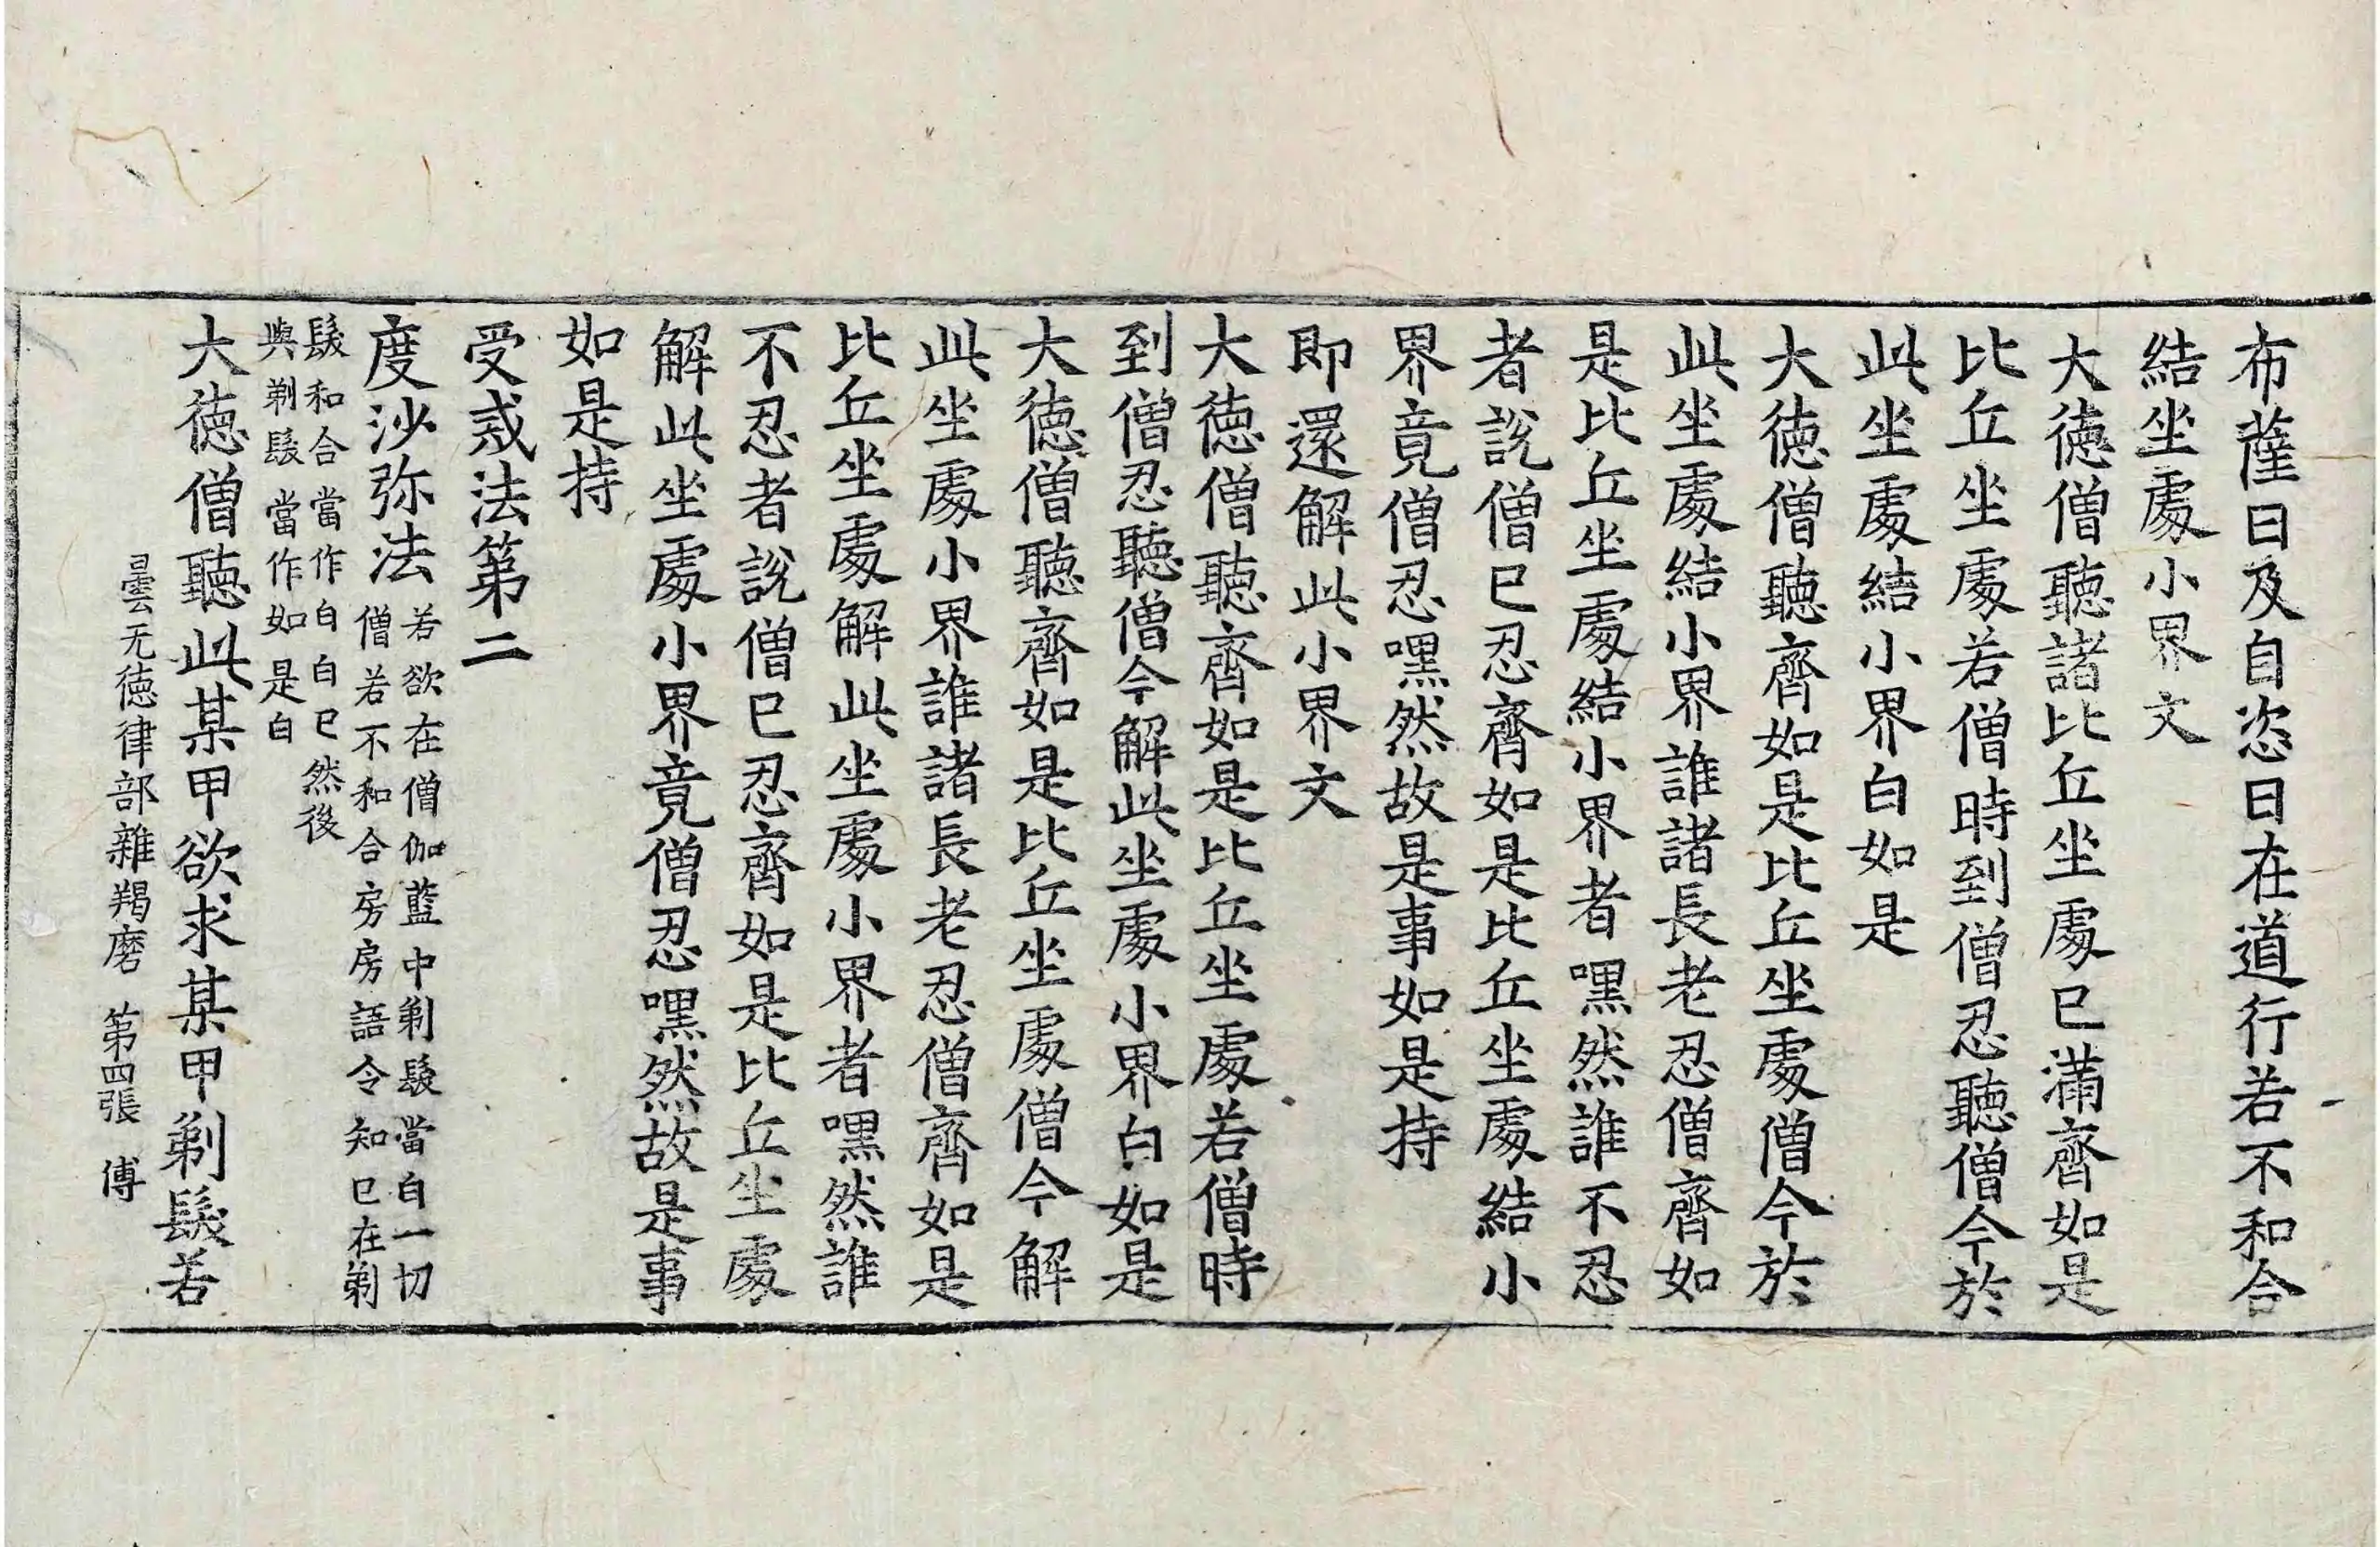 布薩日及自恣日在道行若不和合
結坐處小界文
大德僧聽諸比丘坐處已滿齊如是
比丘坐處若僧時到僧忍聽僧今於
此坐處結小界白如是
大德僧聽齊如是比丘坐處僧今於
此坐處結小界誰諸長老忍僧齊如
是比丘坐處結小界者嘿然誰不忍
者說僧已忍齊如是比丘坐處結小
界竟僧忍嘿然故是事如是持
即還解此小界文
大德僧聽齊如是比丘坐處若僧時
到僧忍聽僧今解此坐處小界白如是
大德僧聽齊如是比丘坐處僧今解
此坐處小界誰諸長老忍僧齊如是
比丘坐處解此坐處小界者嘿然誰
不忍者說僧已忍齊如是比丘坐處
解此坐處小界竟僧忍嘿然故是事
如是持
受戒法第二
度沙弥法
若欲在僧伽藍中剃髮當白一切
僧若不和合房房語令知已在剃
髮和合當作白白已然後
與剃髮當作如是白
大德僧聽此某甲欲求某甲剃髮若
曇无德律部雜羯磨 第四張 傅